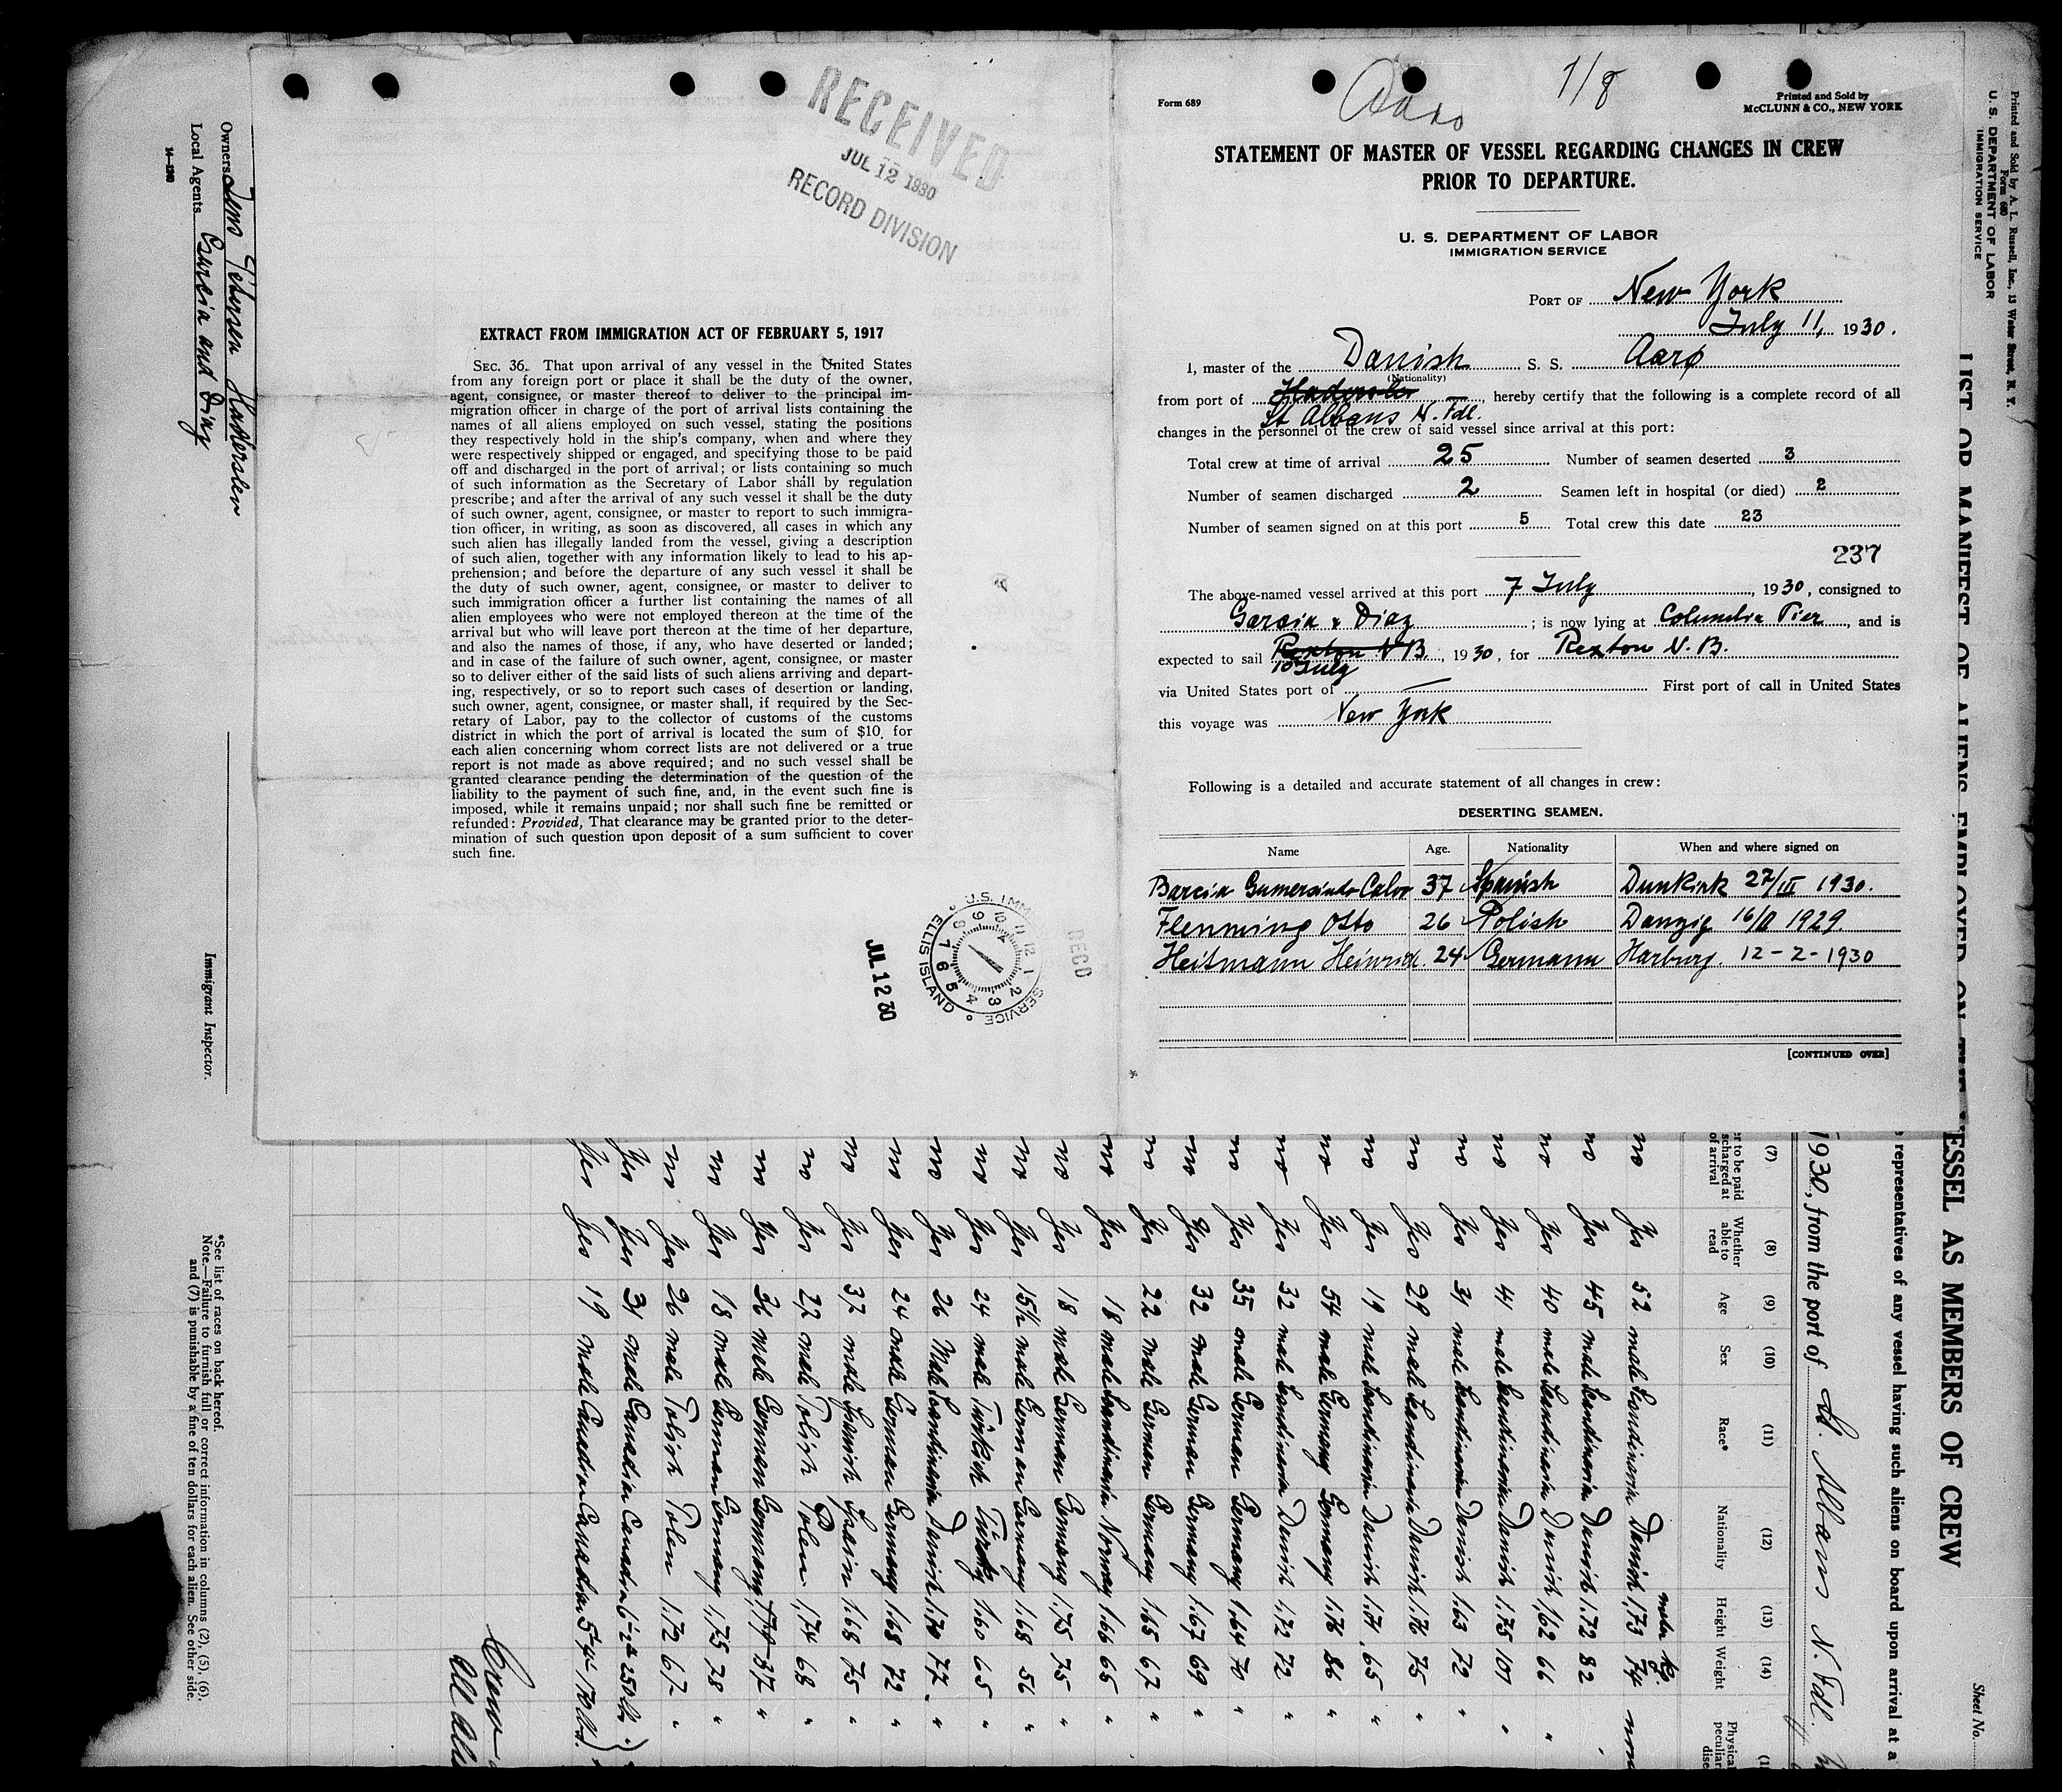 RECEIVED
JUL 12 1930
RECORD DIVISION
EXTRACT FROM IMMIGRATION ACT OF FEBRUARY 5, 1917
SEC. 36. That upon arrival of any vessel in the United States
from any foreign port or place it shall be the duty of the owner,
agent, consignee, or master thereof to deliver to the principal im-
migration officer in charge of the port of arrival lists containing the
names of all aliens employed on such vessel, stating the positions
they respectively hold in the ship's company, when and where they
were respectively shipped or engaged, and specifying those to be paid
off and discharged in the port of arrival; or lists containing so much
of such information as the Secretary of Labor shall by regulation
prescribe; and after the arrival of any such vessel it shall be the duty
of such owner, agent, consignee, or master to report to such immigra-
tion officer, in writing, as soon as discovered, all cases in which any
such alien has illegally landed from the vessel, giving a description
of such alien, together with any information likely to lead to his ap-
prehension; and before the departure of any such vessel it shall be
the duty of such owner, agent, consignee, or master to deliver to
such immigration officer a further list containing the names of all
alien employees who were not employed thereon at the time of the
arrival but who will leave port thereon at the time of her departure,
and also the names of those, if any, who have deserted or landed;
and in case of the failure of such owner, agent, consignee, or master
so to deliver either of the said lists of such aliens arriving and depart-
ing, respectively, or so to report such cases of desertion or landing,
such owner, agent, consignee, or master shall, if required by the Sec-
retary of Labor, pay to the collector of customs of the customs
district in which the port of arrival is located the sum of $10 for
each alien concerning whom correct lists are not delivered or a true
report is not made as above required; and no such vessel shall be
granted clearance pending the determination of the question of the
liability to the payment of such fine, and, in the event such fine is
imposed, while it remains unpaid; nor shall such fine be remitted or
refunded: Provided, That clearance may be granted prior to the deter-
mination of such question upon deposit of a sum sufficient to cover
such fine.
U.S. IMM SERVICE
ELLIS ISLAND
JUL 12 30
RECD
Form 689
Aaro
1/8
Printed and Sold by
McCLUNN & CO., NEW YORK
STATEMENT OF MASTER OF VESSEL REGARDING CHANGES IN CREW
PRIOR TO DEPARTURE.
U. S. DEPARTMENT OF LABOR
IMMIGRATION SERVICE
PORT OF New York
July 11, 1930.
I, master of the Danish S. S. Aarø
(Nationality)
from port of St Albans N. Fdl. , hereby certify that the following is a complete record of all
changes in the personnel of the crew of said vessel since arrival at this port:
Total crew at time of arrival 25 Number of seamen deserted 3
Number of seamen discharged 2 Seamen left in hospital (or died) 2
Number of seamen signed on at this port 5 Total crew this date 23
237
The above-named vessel arrived at this port 7 July , 1930, consigned to
Garcia & Diaz ; is now lying at Columbia Pier , and is
expected to sail Rexton N B 10 July , 1930, for Rexton N. B.
via United States port of — First port of call in United States
this voyage was New York
Following is a detailed and accurate statement of all changes in crew:
DESERTING SEAMEN.
Name Age. Nationality When and where signed on
Barcia Gumersindo Calvo 37 Spanish Dunkirk 27/III 1930.
Flemming Otto 26 Polish Danzig 16/11 1929
Heitmann Heinrich 24 Germann Harburg. 12 - 2 - 1930
[CONTINUED OVER]
Printed and Sold by A. L. Russell, Inc., 13 Water Street, N. Y.
Form 680
U. S. DEPARTMENT OF LABOR
IMMIGRATION SERVICE
Sheet No.
LIST OR MANIFEST OF ALIENS EMPLOYED ON THE VESSEL AS MEMBERS OF CREW
representatives of any vessel having such aliens on board upon arrival at a
1930, from the port of St. Albans N. Fdl.
(7) (8) (9) (10) (11) (12) (13) (14)
er to be paid scharged at of arrival
Whether able to read
Age
Sex
Race*
Nationality
Height
Weight
Physical peculiar dise
meter kg.
no Yes 52 male Scandinavia Danish 1,73 74
no Yes 45 male Scandinavia Danish 1.72 82
no Yes 40 male Scandinavia Danish 1,62 66 "
no Yes 41 male Scandinavia Danish 1.75 107 "
no Yes 31 male Scandinavia Danish 1.63 72 "
no Yes 29 male Scandinavia Danish 1.76 75 "
no Yes 19 male Scandinavia Danish 1.74 65 "
no Yes 54 male Germany Germany 1.76 86 "
no Yes 32 male Scandinavia Danish 1.72 72 "
no Yes 35 male German Germany 1.64 70 "
no Yes 32 male German Germany 1.67 69 "
no Yes 22 male German Germany 1.65 67 "
no Yes 18 male Scandinavia Norway 1.66 65 "
no Yes 18 male German Germany 1.75 75 "
no Yes 15½ male German Germany 1.65 56 "
no Yes 24 male Turkish Turkey 1.60 65 "
no Yes 26 Male Scandinavia Danish 1.70 77 "
no Yes 24 male German Germany 1.68 72 "
no Yes 37 male Spanish Spain 1.68 75 "
no Yes 27 male Polish Polen 1,74 68 "
no Yes 36 male German Germany 87 "
no Yes 18 male German Germany 1.75 78 "
no Yes 26 male Polish Polen 1.72 67 "
Yes Yes 31 male Canadian Canadian 6'-2" 250 lbs.
Yes Yes 19 male Canadian Canadian 5'4" 170 lbs.
Crew
All
Owners Jens Petersen Haderslen
Local Agents Garcia and Diaz
14—1240
Immigrant Inspector.
*See list of races on back hereof.
Note.—Failure to furnish full or correct information in columns (2), (5), (6),
and (7) is punishable by a fine of ten dollars for each alien. See other side.